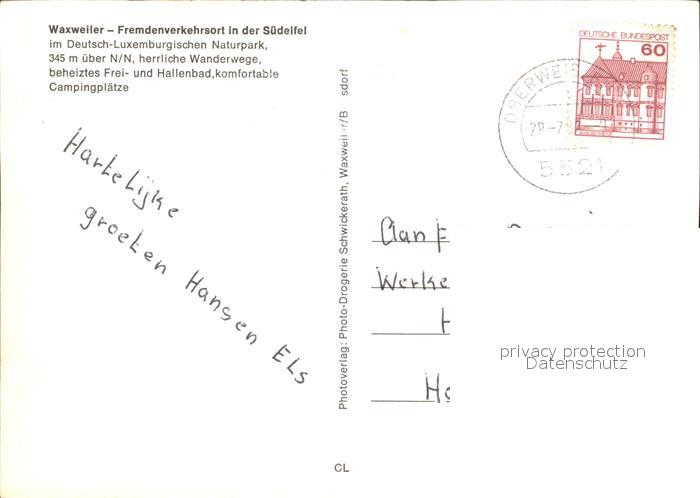 Waxweiler – Fremdenverkehrsort in der Südeifel
im Deutsch-Luxemburgischen Naturpark,
345 m über N/N, herrliche Wanderwege,
beheiztes Frei- und Hallenbad,komfortable
Campingplätze
Hartelijke
groeten Hansen Els
Photoverlag: Photo-Drogerie Schwickerath, Waxweiler/B sdorf
CL
DEUTSCHE BUNDESPOST
60
OBERWEIS
28-7
5521
Aan F
Werke
H
Ho
privacy protection
Datenschutz